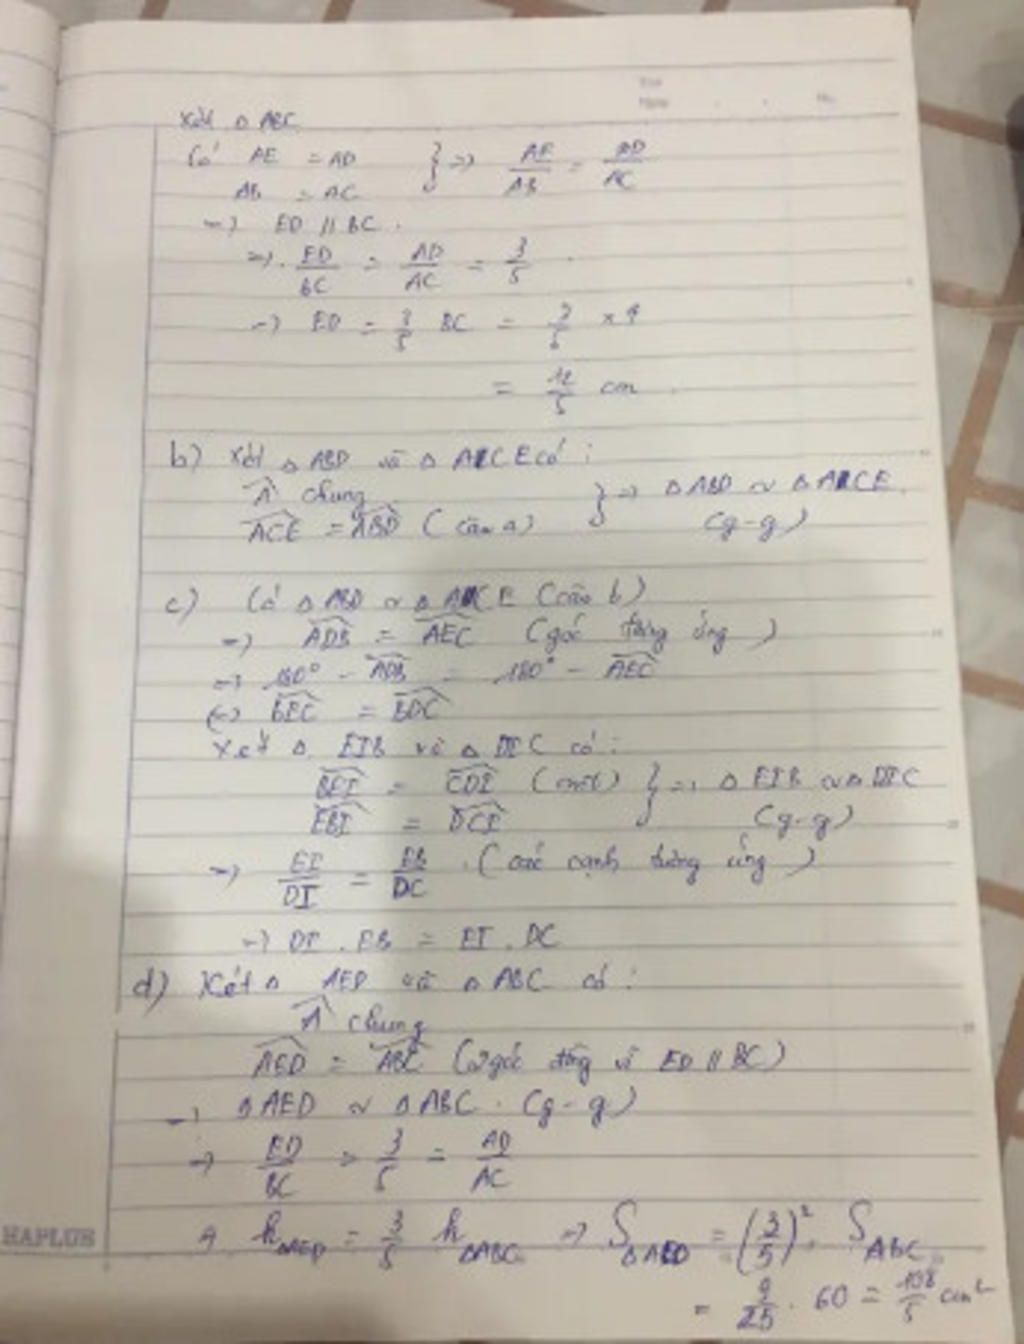 Xét Δ ABC
Có AE = AD
AB = AC } => AE/AB = AD/AC
=> ED // BC.
=> ED/BC = AD/AC = 3/5
=> ED = 3/5 BC = 3/5 × 4
= 12/5 cm
b) Xét Δ ABD và Δ ACE có:
Â chung
ACE = ABD (câu a) } => Δ ABD ~ Δ ACE (g-g)
c) Có Δ ABD ~ Δ ACE (câu b)
=> ADB = AEC (góc tương ứng)
=> 180° - ADB = 180° - AEC
<=> BEC = BDC
Xét Δ EIB và Δ DIC có:
BEI = CDI (cmt)
EBI = DCI } => Δ EIB ~ Δ DIC (g-g)
=> EI/DI = EB/DC (các cạnh tương ứng)
=> DI . EB = EI . DC
d) Xét Δ AED và Δ ABC có:
Â chung
AED = ABC (2 góc đồng vị ED // BC)
=> Δ AED ~ Δ ABC. (g-g)
=> ED/BC = 3/5 = AD/AC
h ΔAED = 3/5 h ΔABC => S ΔAED = (3/5)². S ABC
= 9/25 . 60 = 108/5 cm²
HAPLUS